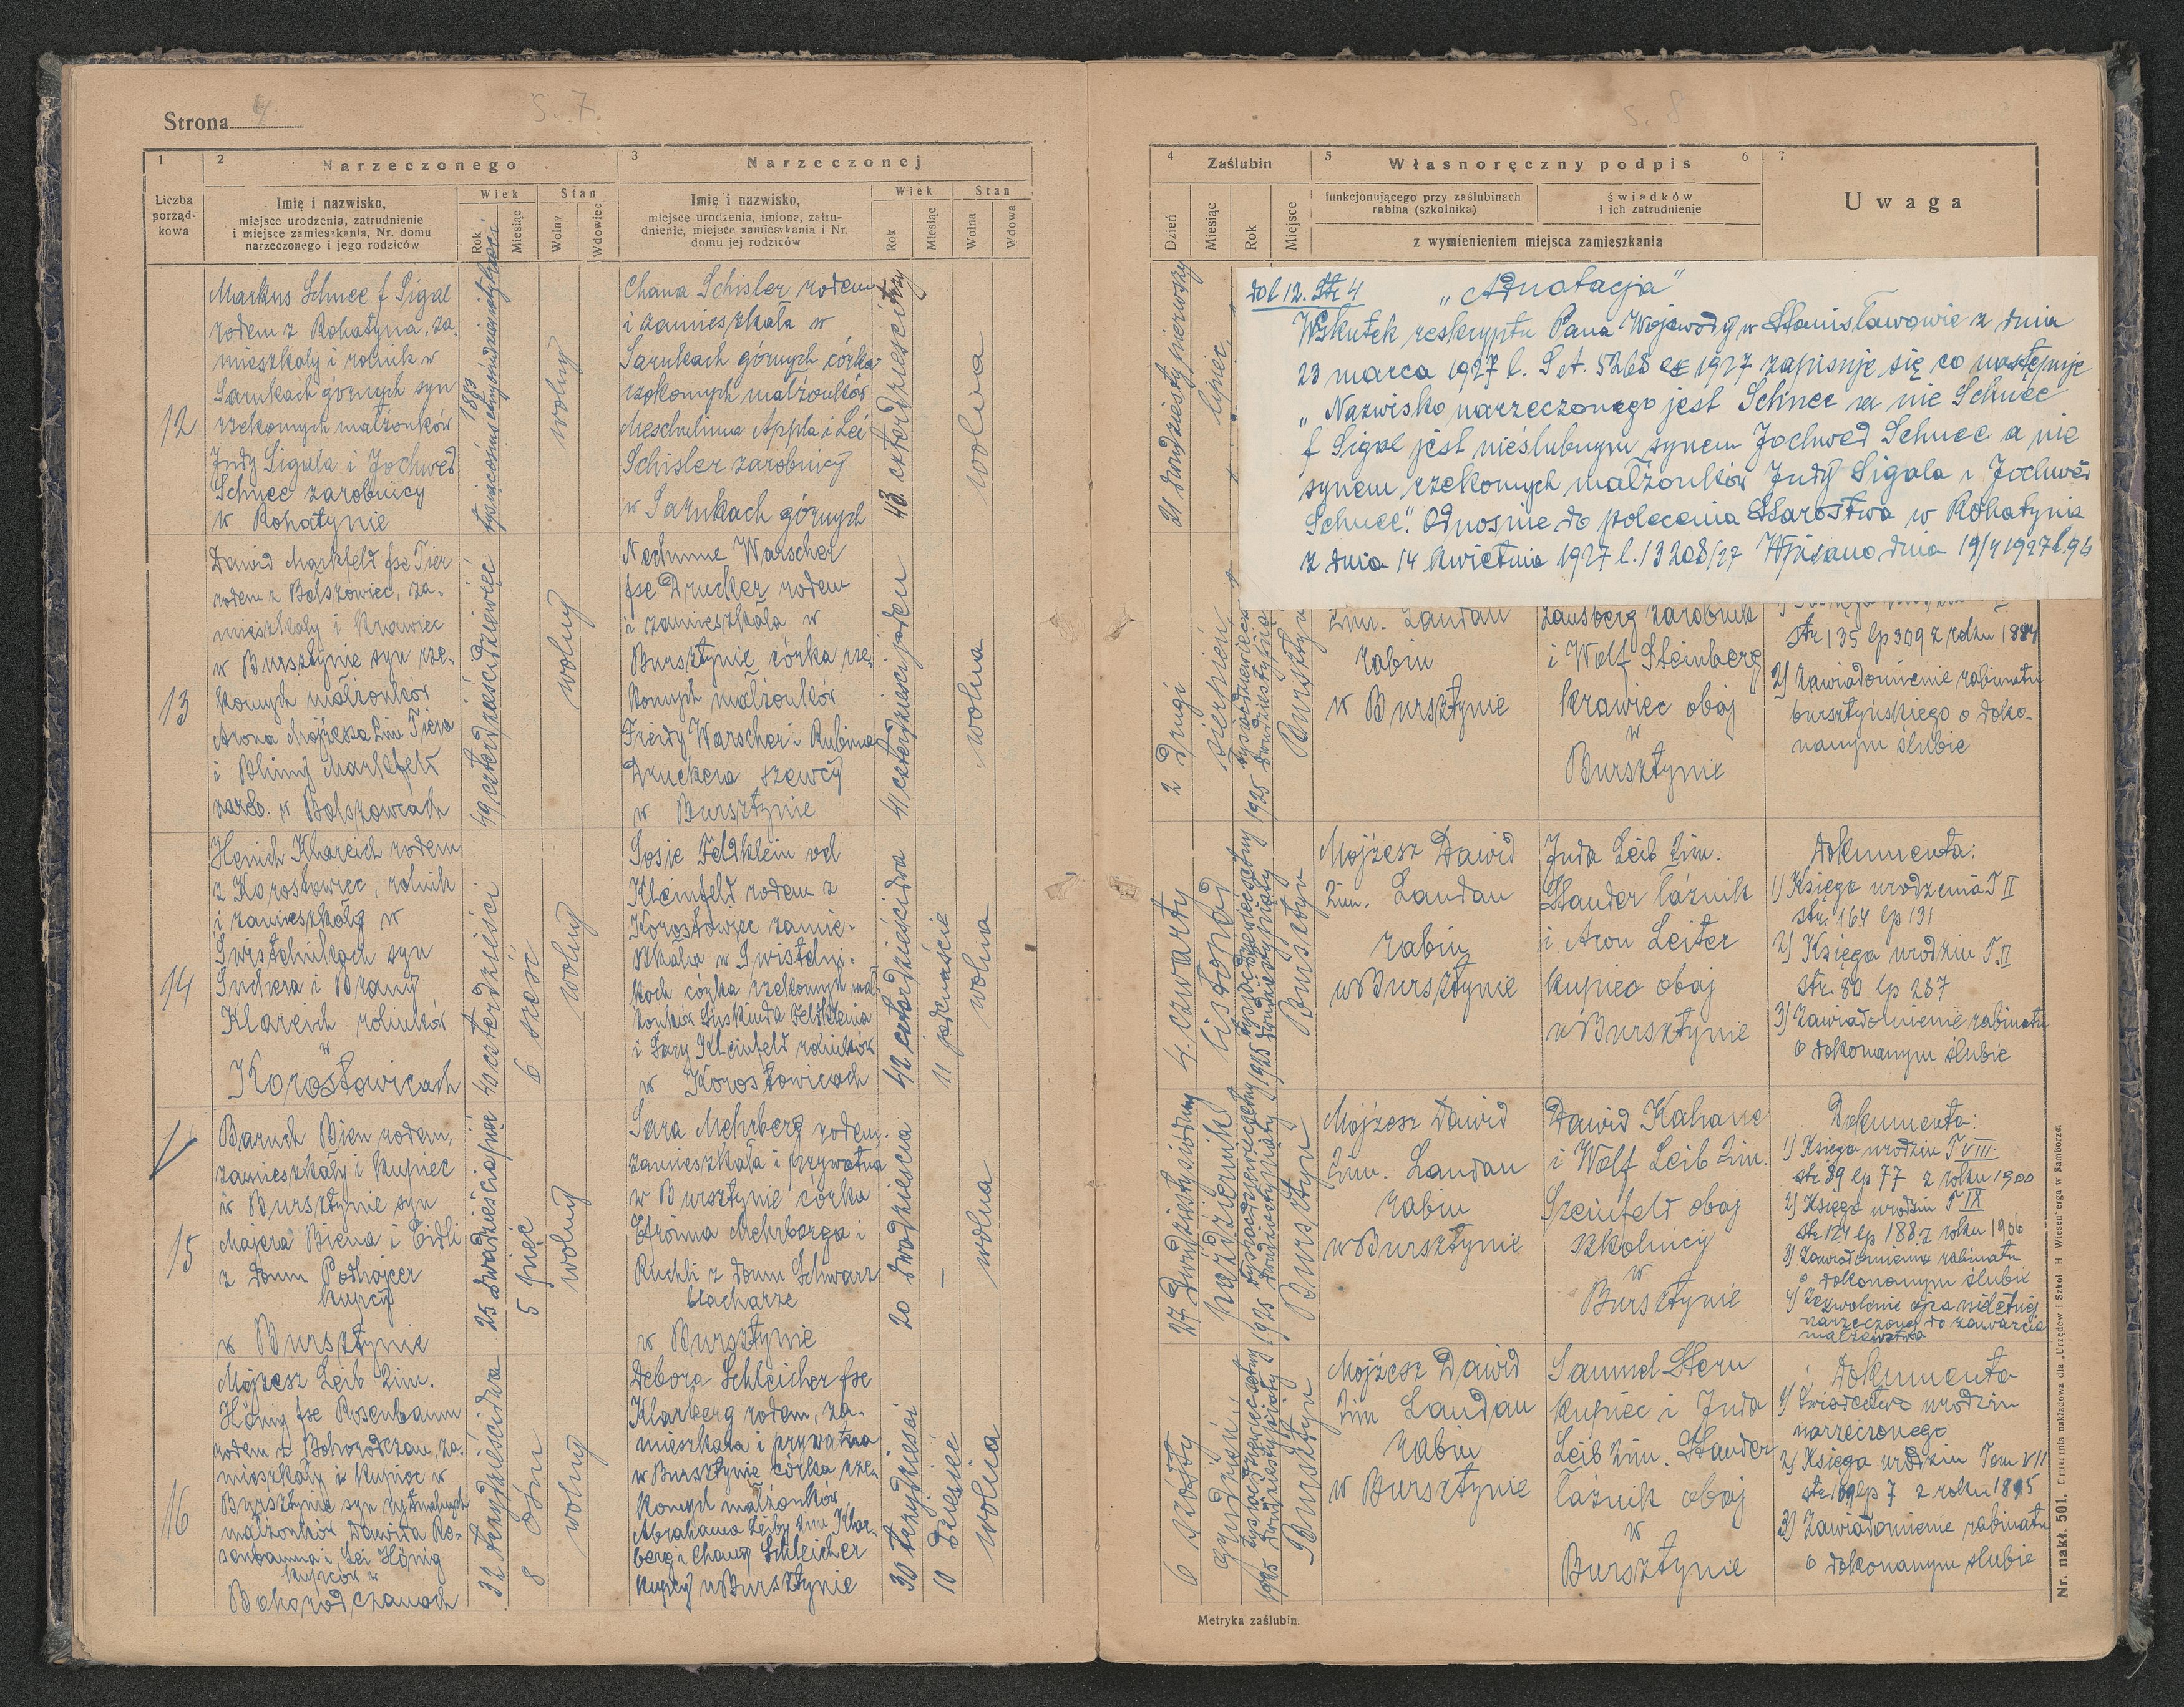 Strona 4
S. 7.
1
2
Narzeczonego
3
Narzeczonej
Liczba
porząd-
kowa
Imię i nazwisko,
miejsce urodzenia, zatrudnienie
i miejsce zamieszkania, Nr. domu
narzeczonego i jego rodziców
Wiek
Stan
Rok
Miesiąc
Wolny
Wdowiec
Imię i nazwisko,
miejsce urodzenia, imiona, zatru-
dnienie, miejsce zamieszkania i Nr.
domu jej rodziców
Wiek
Stan
Rok
Miesiąc
Wolna
Wdowa
12
Markus Schnee f Sigal
rodem z Rohatyna, za-
mieszkały i rolnik w
Sarnkach górnych syn
rzekomych małżonków
Judy Sigala i Jochwed
Schnee zarobnicy
w Rohatynie
1883
wolny
Chana Schisler rodem
i zamieszkała w
Sarnkach górnych córka
rzekomych małżonków
Meschulima Appla i Lei
Schisler zarobnicy
w Sarnkach górnych
43 czterdzieści trzy
wolna
13
Dawid Markfeld fse Tier
rodem z Bolszowiec, za-
mieszkały i krawiec
w Bursztynie syn rze-
komych małżonków
Arona Mojżesza 2im Tiera
i Blimy Markfeld
zarob. w Bolszowcach
49 czterdzieści dziewięć
wolny
Nechume Warscher
fse Drucker rodem
i zamieszkała w
Bursztynie córka rze-
komych małżonków
Freidy Warscher i Rubina
Druckera szewcy
w Bursztynie
41 czterdzieści jeden
wolna
14
Henich Klareich rodem
z Korostowiec, rolnik
i zamieszkały w
Świstelnikach syn
Suchera i Brany
Klareich rolników
w
Korostowicach
40 czterdzieści
6 sześć
wolny
Sosie Feldklein vel
Kleinfeld rodem z
Korostowiec zamie-
szkała w Świstelni-
kach córka rzekomych mał-
żonków Süskinda Feldkleina
i Sary Kleinfeld rolników
w Korostowicach
42 czterdzieści dwa
11 jedenaście
wolna
15
Baruch Bien rodem,
zamieszkały i kupiec
w Bursztynie syn
Majera Biena i Eidli
z domu Podhajcer
kupcy
w Bursztynie
25 dwadzieścia pięć
5 pięć
wolny
Sara Mehrberg rodem.
zamieszkała i prywatna
w Bursztynie córka
Efroima Mehrberga i
Ruchli z domu Schwarz
blacharze
w Bursztynie
20 dwadzieścia
—
wolna
16
Mojżesz Leib 2im.
Hönig fse Rosenbaum
rodem z Bohorodczan, za-
mieszkały i kupiec w
Bursztynie syn rytualnych
małżonków Dawida Ro-
senbauma i Lei Hönig
kupców w
Bohorodczanach
32 trzydzieści dwa
8 ośm
wolny
Debora Schleicher fse
Klarberg rodem, za-
mieszkała i prywatna
w Bursztynie córka rze-
komych małżonków
Abrahama Leiby 2im Klar-
berg i Chany Schleicher
kupcy w Bursztynie
30 trzydzieści
10 dziesięć
wolna
S. 8
4
Zaślubin
5
Własnoręczny podpis
6
7
Dzień
Miesiąc
Rok
Miejsce
funkcjonującego przy zaślubinach
rabina (szkolnika)
świadków
i ich zatrudnienie
z wymienieniem miejsca zamieszkania
Uwaga
21 dwudziesty pierwszy
lipiec
do l 12. Str 4
„Adnotacja”
Wskutek reskryptu Pana Wojewody w Stanisławowie z dnia
23 marca 1927 l. S.A. 5268 ex 1927 zapisuje się co następuje
„Nazwisko narzeczonego jest Schnee a nie Schnee
f Sigal jest nieślubnym synem Jochwed Schnee a nie
synem rzekomych małżonków Judy Sigala i Jochwed
Schnee”. Odnośnie do polecenia Starostwa w Rohatynie
z dnia 14 kwietnia 1927 l. 13208/27 Wpisano dnia 19/4 1927 l. 96
2 drugi
sierpień
1925
Bursztyn
2im. Landau
rabin
w Bursztynie
Lansberg zarobnik
i Wolf Steinberg
krawiec obaj
w
Bursztynie
str 135 lp 309 z roku 1884
2) Zawiadomienie rabinatu
bursztyńskiego o doko-
nanym ślubie
4. czwarty
listopad
1925 tysiąc dziewięćsetny
dwudziesty piąty
Bursztyn
Mojżesz Dawid
2im. Landau
rabin
w Bursztynie
Juda Leib 2im.
Stander łaźnik
i Aron Leiter
kupiec obaj
w Bursztynie
Dokumenta:
1) Księga urodzenia T II
str. 164 lp 131
2) Księga urodzin T. II
str. 80 lp 287
3) Zawiadomienie rabinatu
o dokonanym ślubie
27 dwudziesty siódmy
październik
1925 tysiąc dziewięćsetny
dwudziesty piąty
Bursztyn
Mojżesz Dawid
2im. Landau
rabin
w Bursztynie
Dawid Kahane
i Wolf Leib 2im.
Szeinfeld obaj
szkolnicy
w
Bursztynie
Dokumenta:
1) Księga urodzin T VIII.
str 89 lp 77 z roku 1900
2) Księga urodzin T IX
str 121 lp 188 z roku 1906
3) Zawiadomienie rabinatu
o dokonanym ślubie
4) Zezwolenie ojca nieletniej
narzeczonej do zawarcia
małżeństwa
6 szósty
grudzień
1925 tysiąc dziewięćsetny
dwudziesty piąty
Bursztyn
Mojżesz Dawid
2im Landau
rabin
w Bursztynie
Samuel Stern
kupiec i Juda
Leib 2im. Stander
łaźnik obaj
w
Bursztynie
Dokumenta
1) Świadectwo urodzin
narzeczonego
2) Księga urodzin Tom VII
z roku 1895
3) Zawiadomienie rabinatu
o dokonanym ślubie
Metryka zaślubin.
Nr. nakł. 501. Drukarnia nakładowa dla „Urzędów i Szkół” H. Wiesenberga w Samborze.